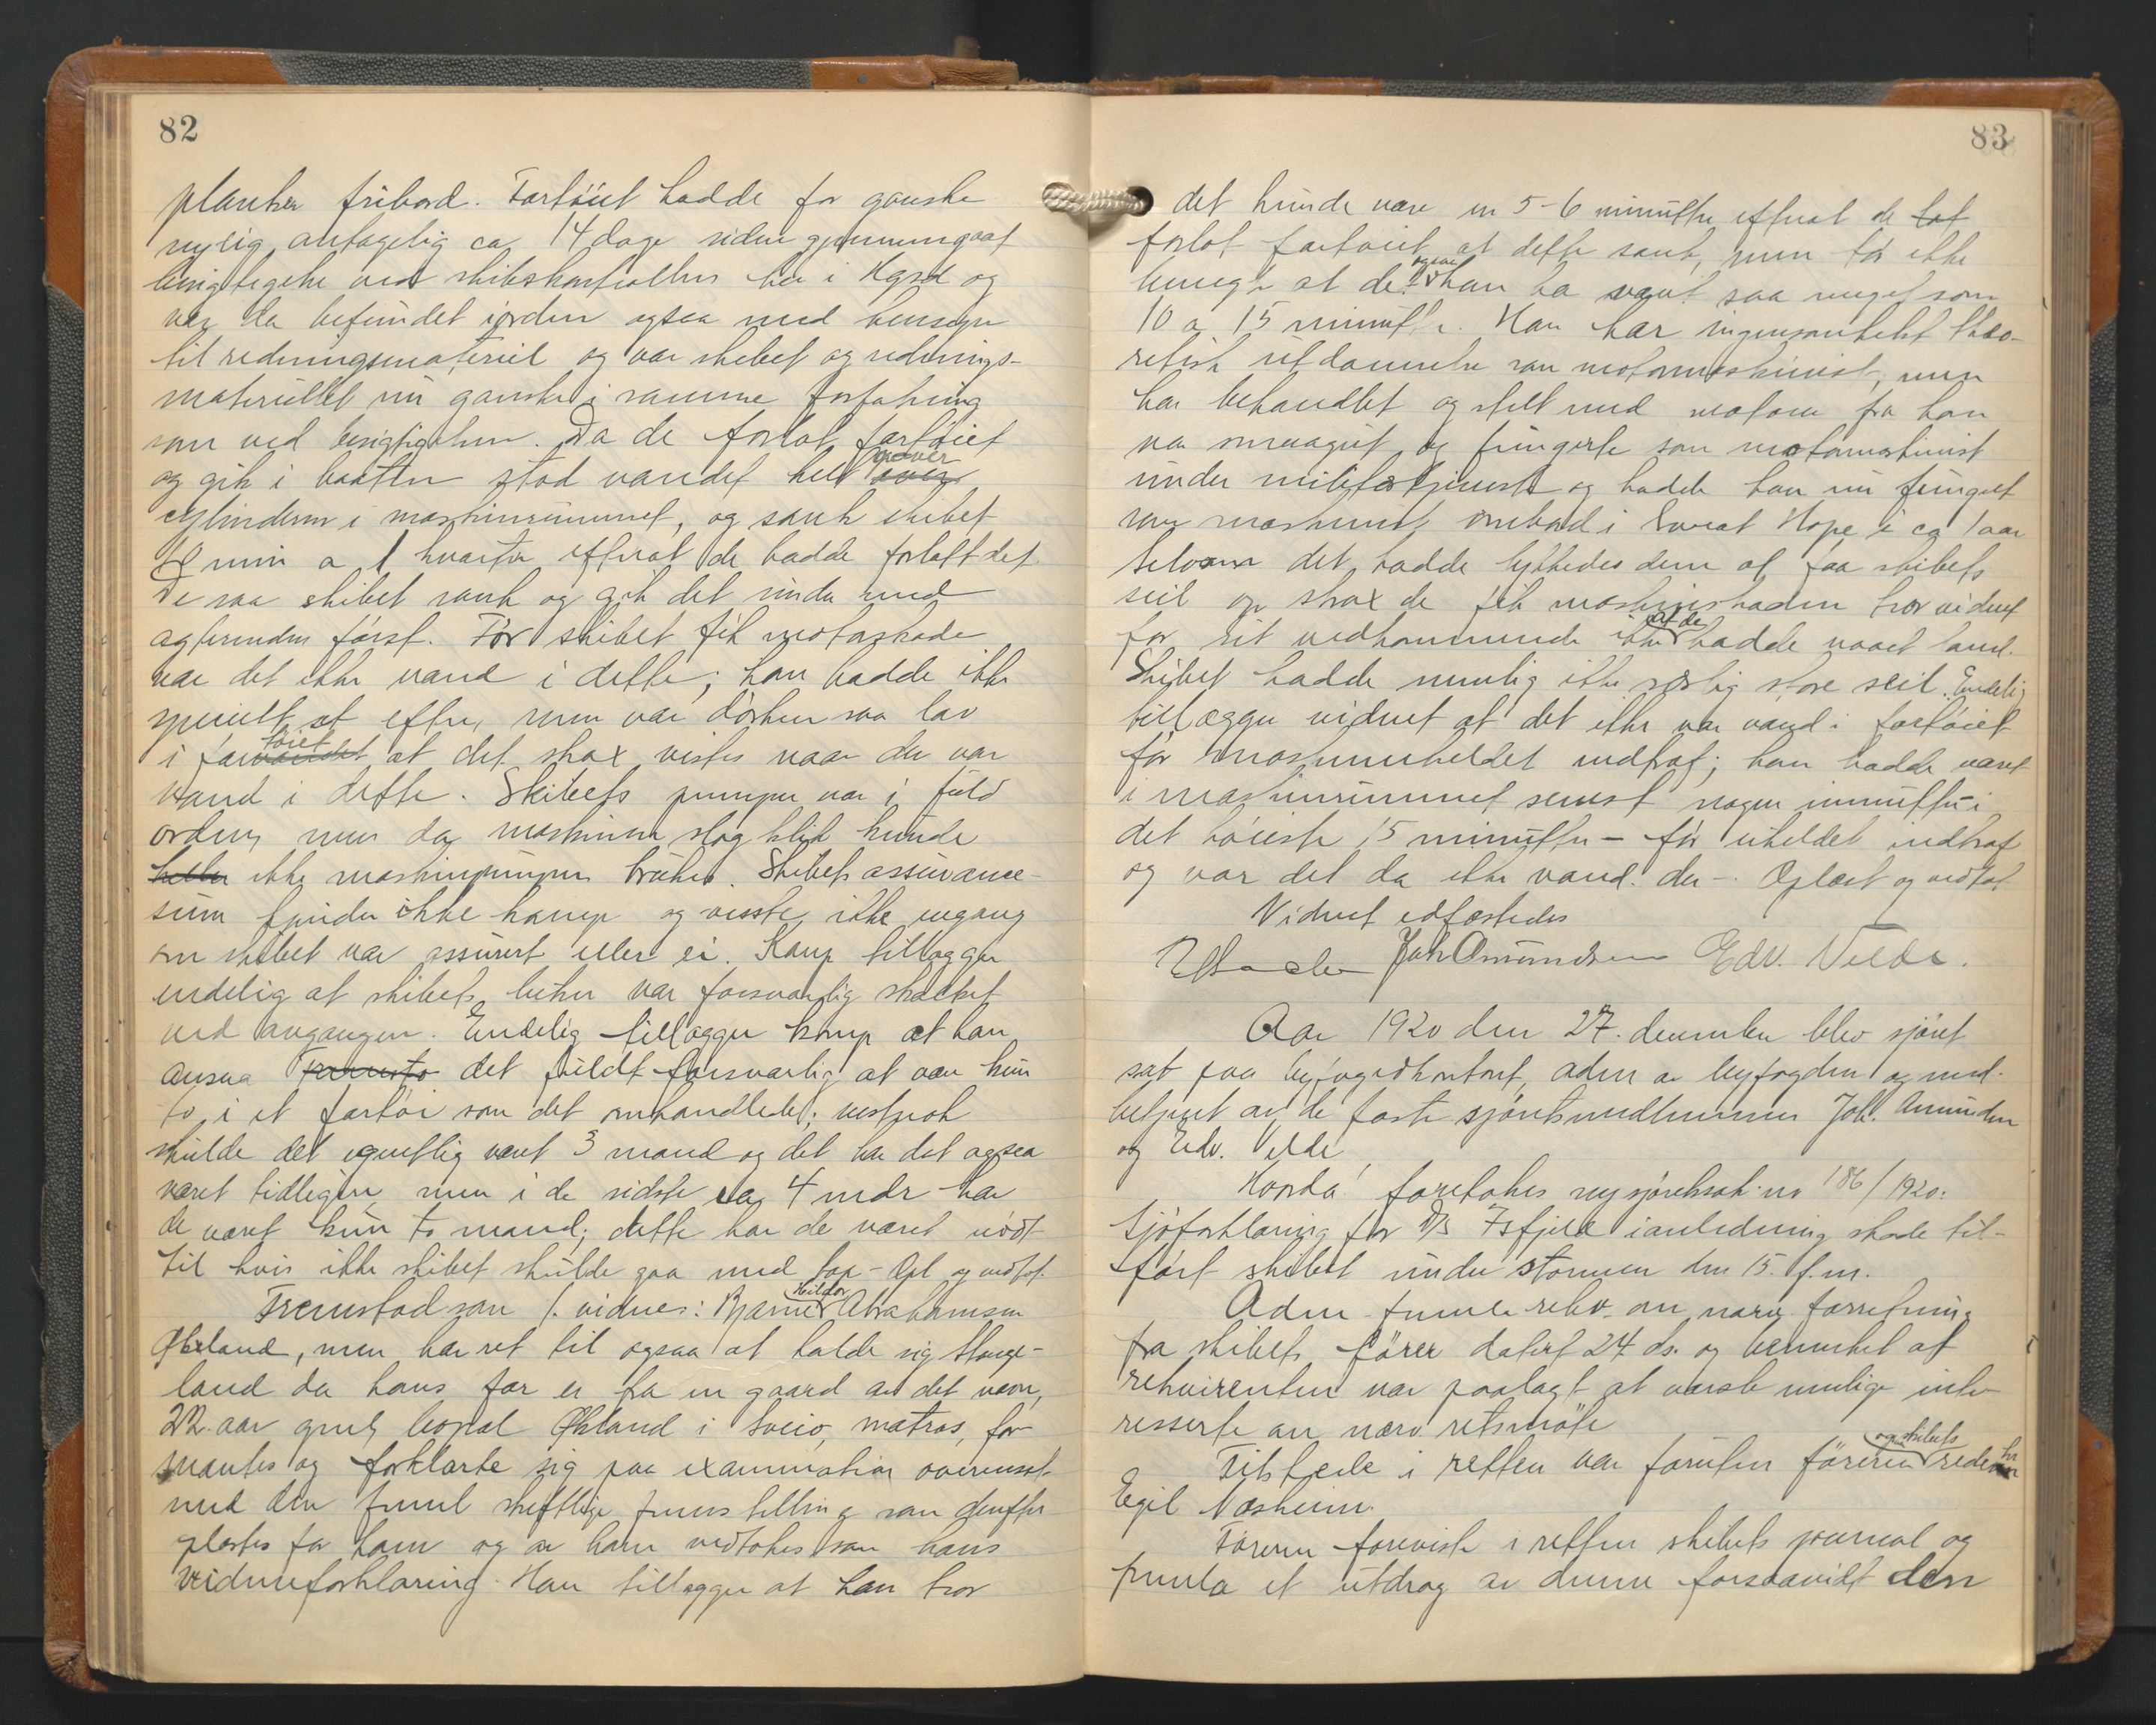 82
planker fribord. Fartöiet hadde for ganske
nylig, antagelig ca 14 dage siden gjennemgaat
besigtigelse ved skibskontrollen her i Hgsd og
var da befundet iorden ogsaa med hensyn
til redningsmateriel og var skibet og rednings-
materiellet nu ganske i samme forfatning
som ved besigtigelsen. Da de forlot fartöiet
og gik i baaten stod vandet helt over
cylinderen i maskinrummet, og sank skibet
10 min a 1 kvarter efterat de hadde forlatt det.
De saa skibet sank og gik det under med
agterenden först. För skibet fik motorskade
var det ikke vand i dette; han hadde ikke
specielt set efter, men var dörken saa lav
i fartöiet at det strax vistes naar der var
vand i dette. Skibets pumper var i fuld
orden, men da maskinen slog klik kunde
heller ikke maskinpumpen brukes. Skibets assurance-
sum kjender ikke komp og visste ikke engang
om skibet var assurert eller ei. Komp tillægger
endelig at skibets luker var forsvarlig skalket
ved avgangen. Endelig tillægger komp at han
ansaa det fuldt forsvarlig at være kun
to i et fartöi som det omhandlede; vistnok
skulde det egentlig været 3 mand og det har det ogsaa
været tidligere, men i de sidste ca 4 mdr har
de været kun to mand; dette har de været nödt
til hvis ikke skibet skulde gaa med tap - Opl og vedtat.
Fremstod som 1. vidne: Bjarne Abrahamsen
Økland, men har ret til ogsaa at kalde sig Stange-
land da hans far er fra en gaard av det navn,
22 aar gml, bopæl Økland i Sveio, matros, for-
mantes og forklarte sig paa examination overensst.
med den freml skriftlige fremstilling som derefter
oplæstes for ham og av ham vedtokes som hans
vidneforklaring. Han tillægger at han tror
83
det kunde være en 5-6 minutter efterat de lot
forlot fartöiet at dette sank, men tör ikke
benegte at det ogsaa kan ha været saa meget som
10 a 15 minutter. Han har ingensomhelst theo-
retisk utdannelse som motormaskinist, men
har behandlet og stelt med motorer fra han
var smaagut og fungerte som motormaskinist
under militærtjeneste og hadde han nu fungert
som maskinist ombord i Hope i ca 1 aar
Selvom det hadde lykkedes dem at faa skibets
seil op strax de fik maskinskaden tror vidnet
for sit vedkommende ikke at de hadde naaet land.
Skibet hadde nemlig ikke særlig store seil. Endelig
tillægger vidnet at det ikke var vand i fartöiet
för maskinuheldet indtraf; han hadde været
i maskinrummet senest nogen minutter i
det höieste 15 minutter - för uheldet indtraf
og var det da ikke vand der -. Oplæst og vedtat
Vidnet edfæstedes
Joh Amundsen Edv. Velde.
Aar 1920 den 27. december blev sjöret
sat paa byfogedkontoret, adm av byfogden og med-
betjent av de faste sjöretsmedlemmer Joh. Amundsen
og Edv. Velde
Hvorda! foretokes ny sjöretssak no 186/1920:
Sjöforklaring for D/S Isfjeld i anledning skade til-
fört skibet under stormen den 15. f.m.
Adm fremla rekv om nærv. forretning
fra skibets förer datert 24 ds. og bemerket at
rekvirenten var paalagt at varsle mulige inte-
resserte om nærv retsmöte
Tilstede i retten var foruten föreren og skibets reder hr
Egil Næsheim.
Föreren foreviste i retten skibets journal og
fremla et utdrag av denne forsaavidt den